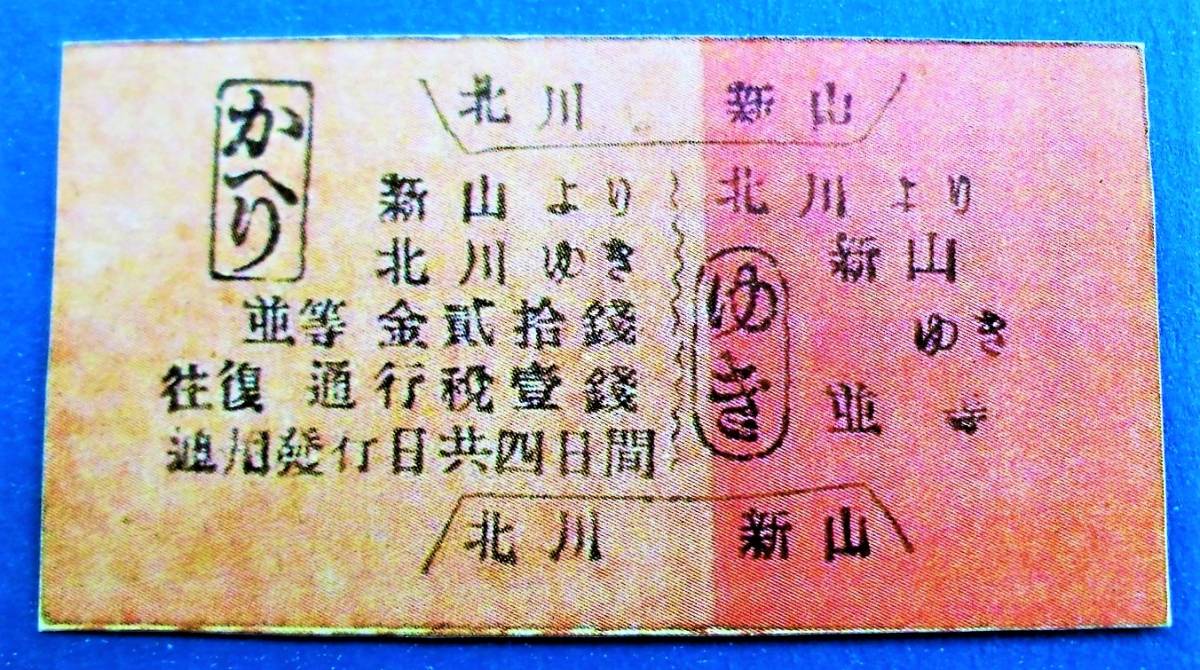 北川 新山
かへり
新山より
北川ゆき
並等 金貳拾錢
往復 通行税壹錢
通用発行日共四日間
北川より
新山
ゆき
ゆき
並 等
北川 新山